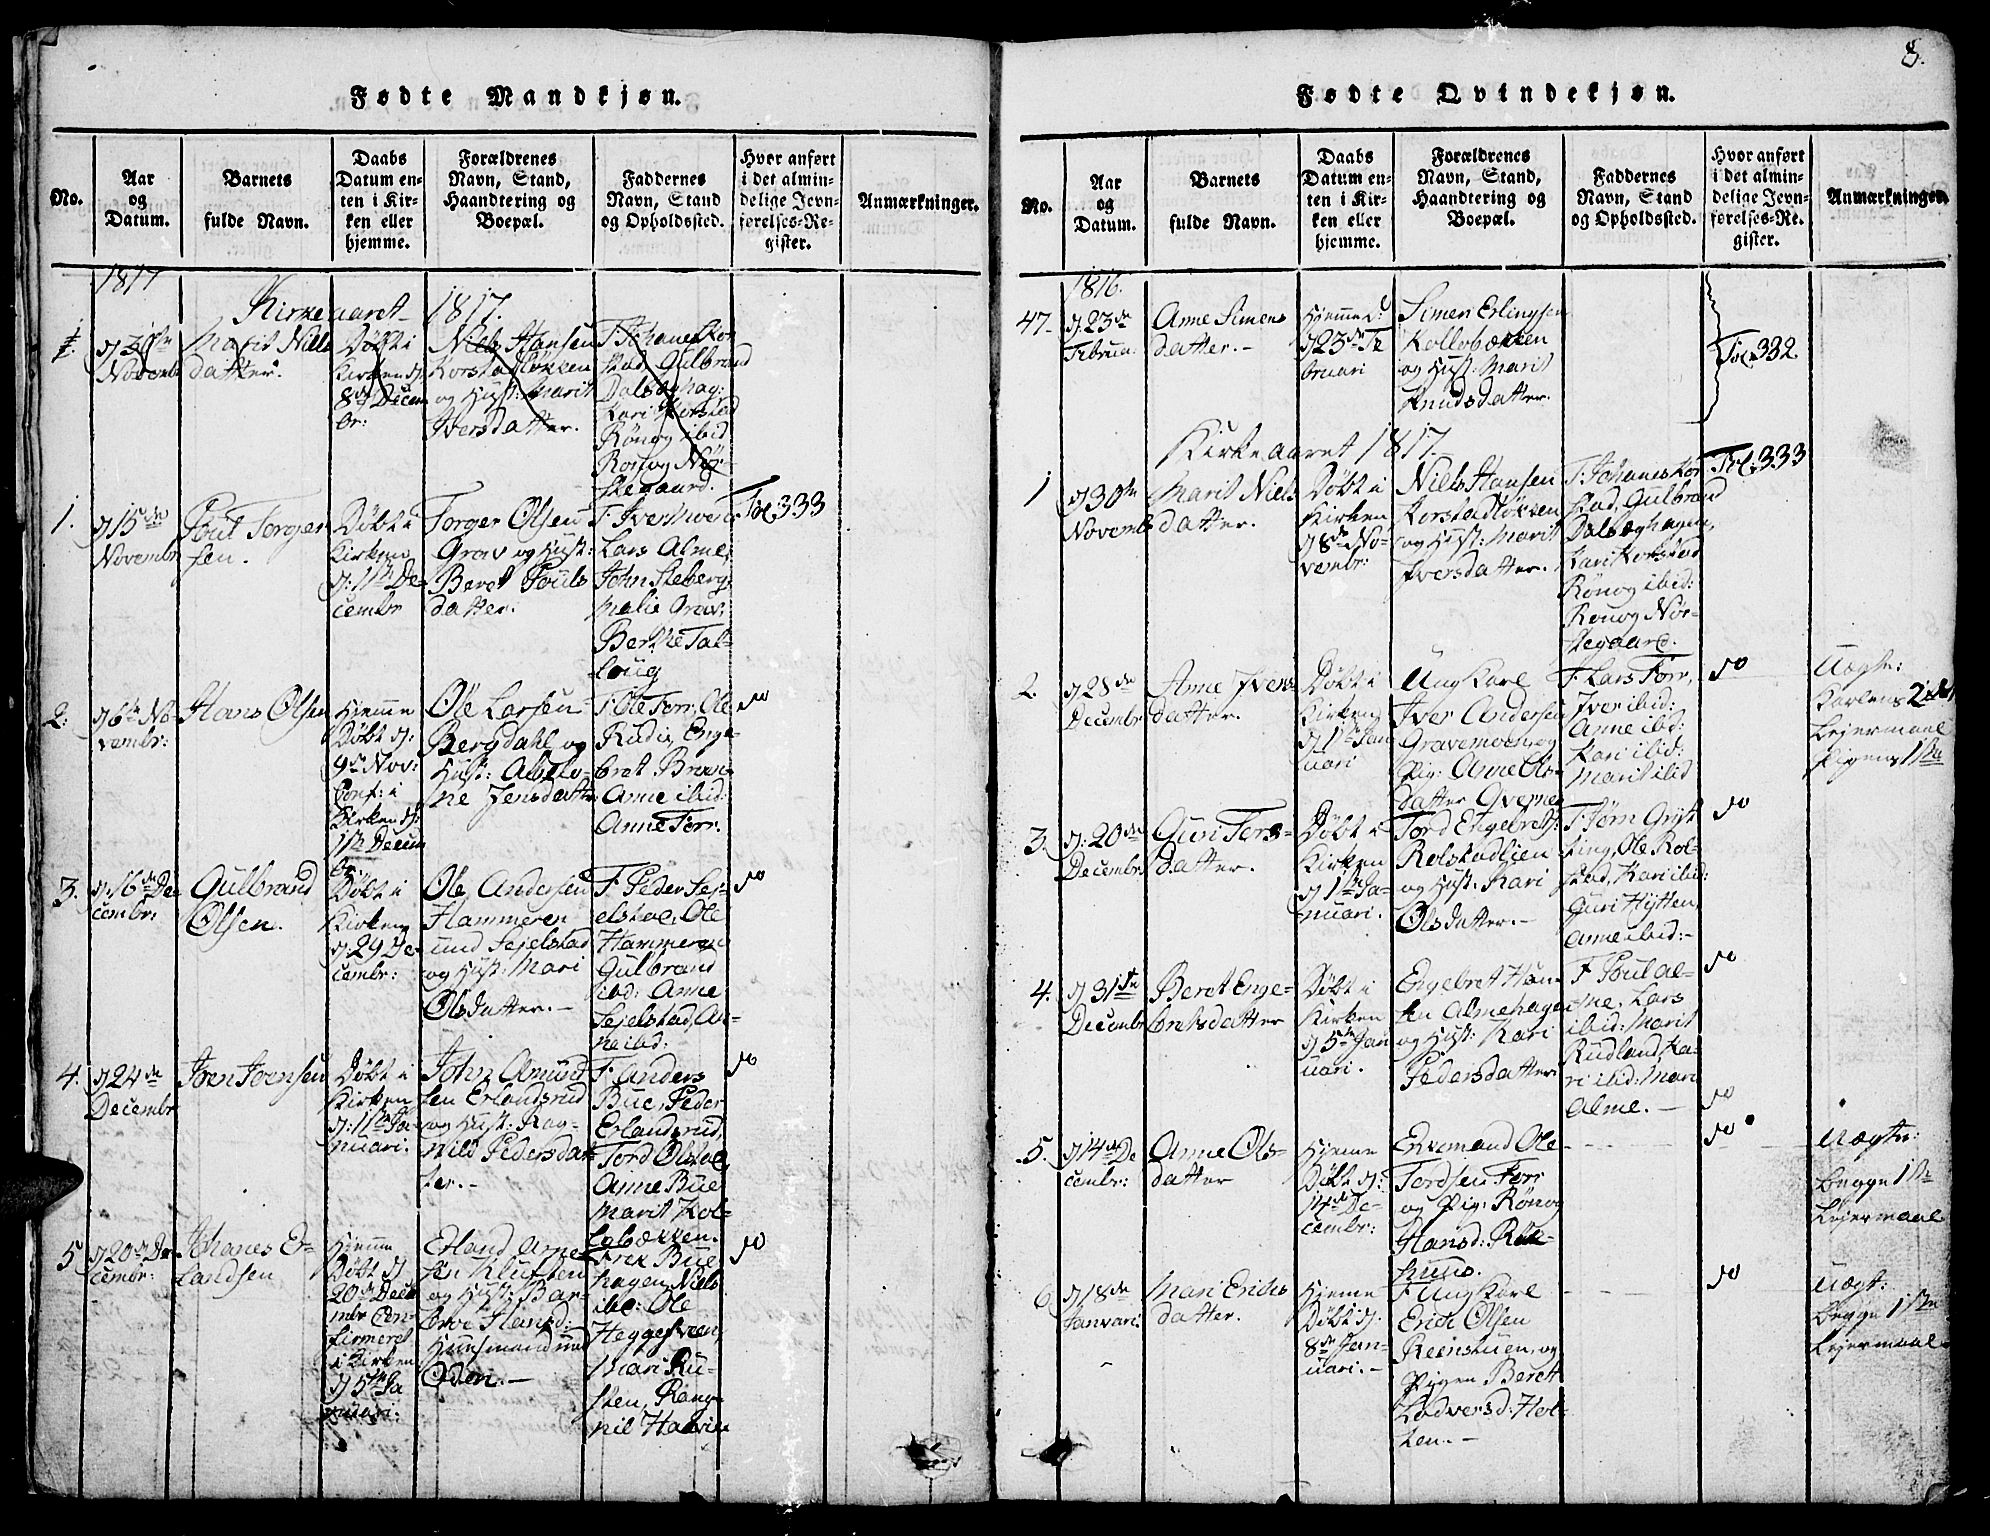 8.
Fødte Mandkjøn.
No.
Aar
og
Datum.
Barnets
fulde Navn.
Daabs
Datum en-
ten i Kir-
ken eller
hjemme.
Forældrenes
Navn, Stand,
Haandtering og
Boepæl.
Faddernes
Navn, Stand
og Opholdssted.
Hvor anført
i det almin-
delige Jevn-
førelses-Re-
gister.
Anmærkninger.
1817
Kirkeaaret 1817.
1.
Novembr
Marit Niels
datter.
Døbt i
Kirken d:
8de Decem
br:
Niels Hansen
Korstadløkken
og Hust: Marit
Iversdatter.
F. Johanes Kor
stad, Gulbrand
Dalsøghag:
Kari Korstad
Rønog ibid
Ronog Nør-
stegaard.
1.
d 15de
Novembr
Poul Torger
sen.
Døbt i
Kirken
d: 1ste De-
cembr
Torger Olsen
Grav og Hust:
Beret Pouls
datter.
Lars Alme,
John Steberg,
Malie Grav:
Berthe Tal-
loug
Fol 333
2.
d 6te No-
vembr:
Hans Olsen
Hjemme
Døbt d:
9de Nov:
Conf: i
Kirken d:
1ste Decem
br:
Ole Larsen
Bergdahl og
Hust:
ne Jensdatter
F. Ole Torr, Ole
Rudie, Enge-
bret Bræn
Anne ibid:
Anne Torr.
do
3.
d: 16de De-
cembr:
Gulbrand
Olsen.
Døbt i
Kirken
d: 29 De-
cembr:
Ole Andersen
Hammeren
und Sejelstad
og Hust: Mari
Olsdatter.-
F Peder Sej-
elstad, Ole
Hammeren
Gulbrand
ibid: Anne
Sejelstad, An-
ne ibid:
do
4.
d 24de
Decembr
Joen Joensen
Døbt i
Kirken
d: 1ste Ja-
nuari.
John Amund
sen Erlandsrud
og Hust: Rag-
nild Pedersdat
ter.-
F. Anders
Bue, Peder
Erlandsrud,
Tord Olstad,
Anne Bue
Marit Kol-
lobækken.
do
5
d 20de De-
cembr:
Johanes Er-
landsen
Hjemme
Døbt d
20de Dece
mbr Con-
firmeret
i Kirken
d 5te Ja
nuari.
Erland Arne
sen Klufsten
og Hust: Bar-
broe Hansd:
Huusmand und
Oden.-
Erik Bue
hagen, Niels
ibid: Ole
Heggestuen,
Mari Ru-
sten, Rang-
nil Haavien
do
Fødte Qvindekjøn.
No.
Aar
og
Datum.
Barnets
fulde Navn.
Daabs
Datum en-
ten i Kir-
ken eller
hjemme.
Forældrenes
Navn, Stand,
Haandtering og
Boepæl.
Faddernes
Navn, Stand
og Opholdssted.
Hvor anført
i det almin-
delige Jevn-
førelses-Re-
gister.
Anmærkninger.
1816.
47.
d. 23de
Februa.
Anne Simens
datter.-
Hjemme d:
d 23de Fe
bruari
Simen Erlingsen
Kollobækken
og Hust: Marit
Knudsdatter.
Fol 332
Kirkeaaret 1817.
1
d 30te
Novembr
Marit Niels
datter.
Døbt i
Kirken
d 8de No-
vembr:
Niels Hansen
Korstadløkken
og Hust: Marit
Iversdatter.
F. Johanes Kor
stad, Gulbrand
Dalsøghagen,
Kari Korstad
Rønog ibid:
Ronog Nør-
stegaard.
Fol. 333
2.
d 28de
Decembr
Anne Ivers
datter.
Døbt i
Kirken
d 1ste Jan
uari
Ung Karl
Iver Andersen
Gravemoen, og
Pig: Anne Ols-
datter Qverne
F. Lars Torr,
Iver ibid:
Anne ibid:
Kari ibid:
Marit ibid
do
Uægte:
Karlens 2det
Lejermaal
Pigens 1ste
3.
d: 20de
Decembr
Guri Tors-
datter.
Døbt i
Kirken
d 1ste Ja-
nuari.
Tord Engebrets:
Rolstadlien
og Hust: Kari
Olsdatter.-
ting, Ole Rol-
stad, Kari ibid:
Guri Hytten,
Anne ibid:-
do
4.
d 31te
Decembr
Beret Enge-
bretsdatter
Døbt i
Kirken
d 5te Jan
uari.
Engebret Han-
sen Almehagen
og Hust: Kari
Pedersdatter:
F Poul Al-
me, Lars
ibid: Marit
Rudland, Ka-
ri ibid: Mari
Alme.-
do
do
5.
d 14de De
cembr:
Anne Ols-
datter
Hjemme
Døbt d:
14de De-
cembr:
Enkemand Ole
Tordsen Torr
og Pig: Rønog
Hansd:
huus.
do
Uægte:
begge 1ste
Lejermaal
6
d 18de
Januari:
Mari Erichs
datter.
Hjemme
Døbt d:
8de Jan-
uari.-
F Ung Karl
Erich Olsen
Reenstuen, og
Pigen Beret
Lodversd: Hol-
ten.-
do
Uægt:
begge 1ste
Lejermaal